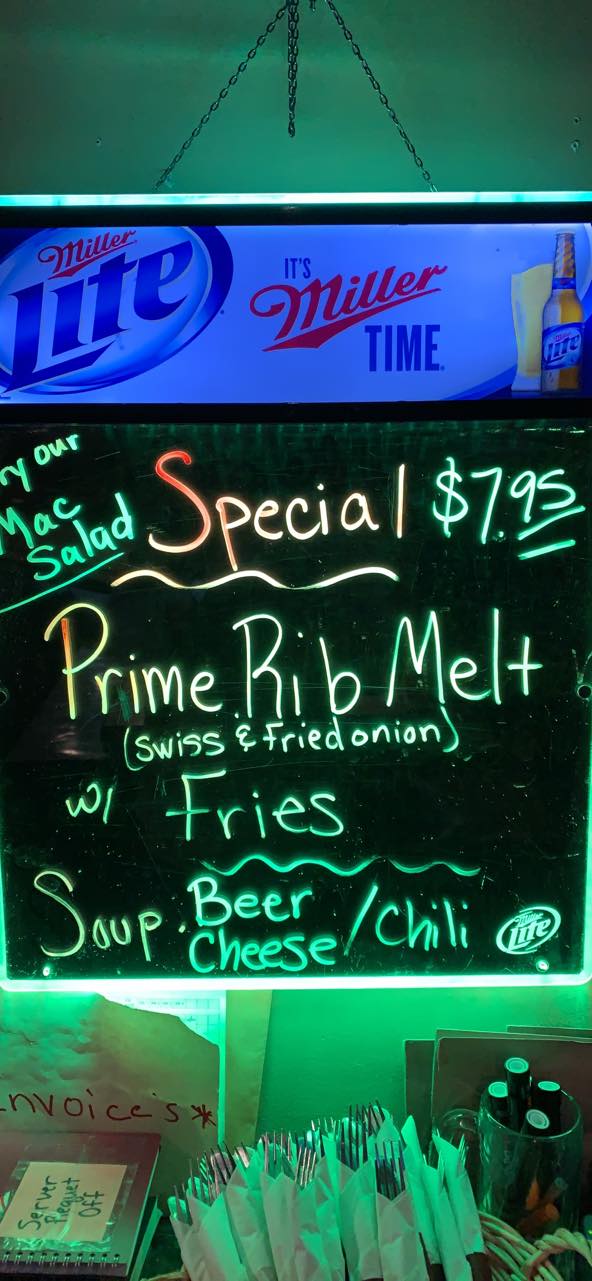 Miller
Lite
IT'S
Miller
TIME.
Lite
ry our
Mac
Salad
Special $7.95
Prime Rib Melt
(Swiss & Fried onion)
w/ Fries
Soup. Beer
Cheese / Chili
Miller
Lite
nvoice's*
Server
Off